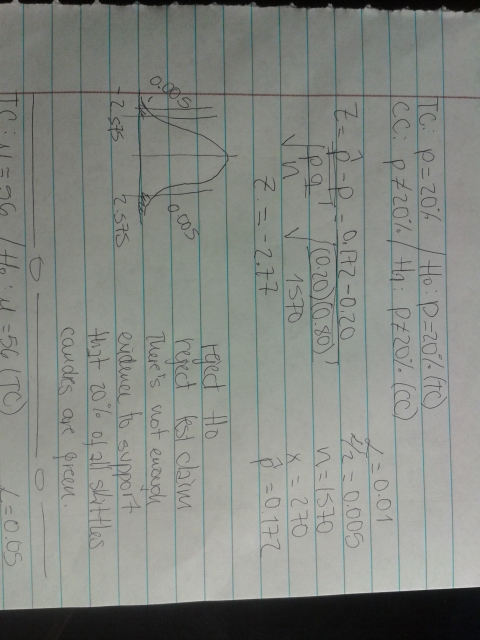 TC: p = 20% / Ho: p = 20% (TC)
CC: p ≠ 20% / Ha: p ≠ 20% (CC)
α = 0.01
α/2 = 0.005
n = 1570
x = 270
p̂ = 0.172
Z = p̂ - p = 0.172 - 0.20
√pq/n √(0.20)(0.80)/1570
Z = -2.77
0.005 0.005
-2.575 2.575
reject Ho
reject test claim
There's not enough
evidence to support
that 20% of all skittles
candies are green.
TC: μ = 56 / Ho: μ = 56 (TC) α = 0.05